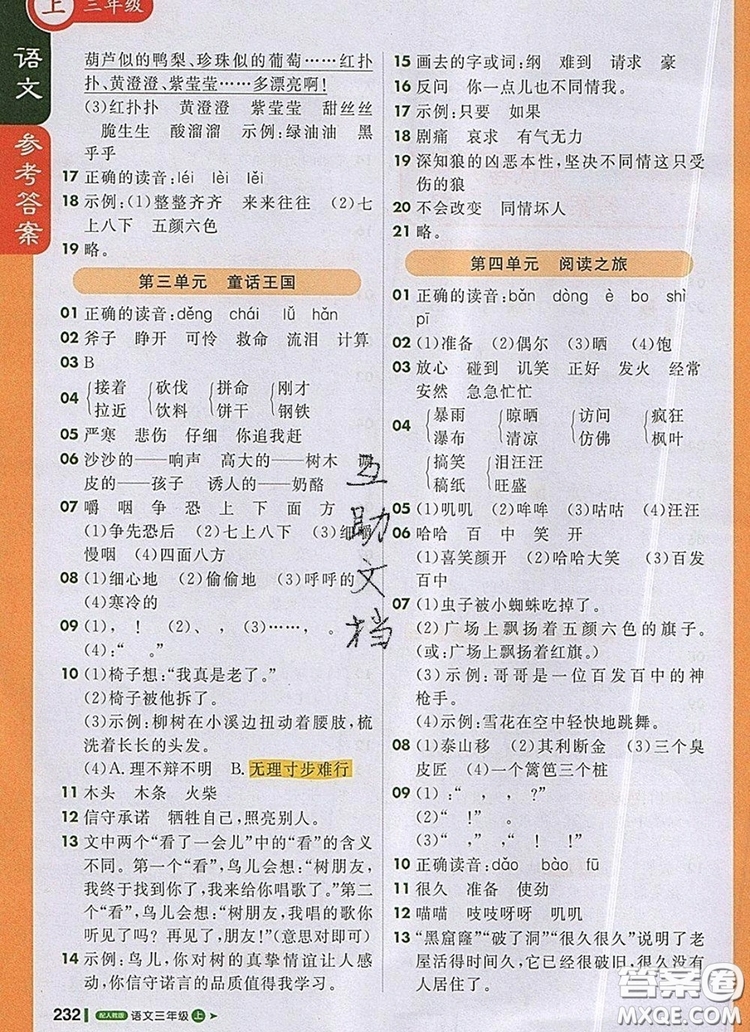 上 三年级
语文
参考答案
葫芦似的鸭梨、珍珠似的葡萄……红扑
扑、黄澄澄、紫莹莹……多漂亮啊!
(3)红扑扑 黄澄澄 紫莹莹 甜丝丝
脆生生 酸溜溜 示例:绿油油 黑
乎乎
17 正确的读音:léi lèi lěi
18 示例:(1)整整齐齐 来来往往 (2)七
上八下 五颜六色
19 略。
第三单元 童话王国
01 正确的读音:děng chái lǚ hǎn
02 斧子 睁开 可怜 救命 流泪 计算
03 B
04 接着 砍伐 拼命 刚才
拉近 饮料 饼干 钢铁
05 严寒 悲伤 仔细 你追我赶
06 沙沙的——响声 高大的——树木
皮的——孩子 诱人的——奶酪
07 嚼 咽 争 恐 上 下 面 方
(1)争先恐后 (2)七上八下 (3)细嚼
慢咽 (4)四面八方
08 (1)细心地 (2)偷偷地 (3)呼呼的
(4)寒冷的
09 (1), ! (2)、, (3)……,。
(4):“ 。”
10 (1)椅子想:“我真是老了。”
(2)椅子被他拆了。
(3)示例:柳树在小溪边扭动着腰肢,梳
洗着长长的头发。
(4)A.理不辩不明 B.无理寸步难行
11 木头 木条 火柴
12 信守承诺 牺牲自己,照亮别人。
13 文中两个“看了一会儿”中的“看”的含义
不同。第一个“看”,鸟儿会想:“树朋友,
我终于找到你了,我来给你唱歌了。”第二
个“看”,鸟儿会想:“树朋友,我唱的歌你
听见了吗?再见了,朋友!”(意思对即可)
14 示例:鸟儿,你对树的真挚情谊让人感
动,你信守诺言的品质值得我学习。
15 画去的字或词:纲 难到 请求 豪
16 反问 你一点儿也不同情我。
17 示例:只要 如果
18 剧痛 哀求 有气无力
19 深知狼的凶恶本性,坚决不同情这只受
伤的狼
20 不会改变 同情坏人
21 略。
第四单元 阅读之旅
01 正确的读音:bǎn dòng è bo shì
pī
02 (1)准备 (2)偶尔 (3)晒 (4)饱
03 放心 碰到 讥笑 正好 发火 经常
安然 急急忙忙
04 暴雨 晾晒 访问 疯狂
瀑布 清凉 仿佛 枫叶
搞笑 泪汪汪
稿纸 旺盛
05 (1)叽叽 (2)哞哞 (3)咕咕 (4)汪汪
06 哈哈 百 中 笑 开
(1)喜笑颜开 (2)哈哈大笑 (3)百发
百中
07 (1)虫子被小蜘蛛吃掉了。
(2)广场上飘扬着五颜六色的旗子。
(或:广场上飘扬着红旗。)
(3)示例:哥哥是一位百发百中的神
枪手。
(4)示例:雪花在空中轻快地跳舞。
08 (1)泰山移 (2)其利断金 (3)三个臭
皮匠 (4)一个篱笆三个桩
09 (1):“ , ,。”
(2)“ !” 。
(3)“ ?” 。
10 正确读音:dǎo bào fū
11 很久 准备 使劲
12 喵喵 吱吱呀呀 叽叽
13 “黑窟窿”“破了洞”“很久很久”说明了老
屋活得时间很长,已经很破旧,很久没
有人居住了。
互助文档
答案圈
MXQE.COM
232 配人教版 语文三年级 上